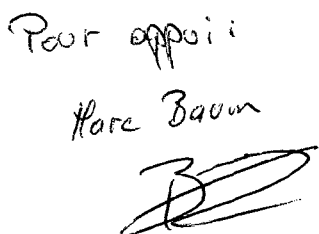 Pour appui :
Marc Baum